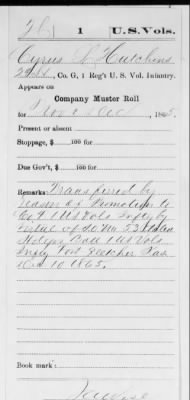 1 U.S. Vols.
Cyrus L Hutchins
2d Lt., Co. G, 1 Reg't U. S. Vol. Infantry.
Appears on
Company Muster Roll
for Nov & Dec, 1865.
Present or absent
Stoppage, $ 100 for
Due Gov't, $ 100 for
Remarks: Transferred by
reason of Promotion to
Co. 1 US Vols Infty by
virtue of S.O. No 53 dated
Hdqrs 1 US Vols
Infty Fort Fletcher Kas
Dec 10 1865.
Book mark: